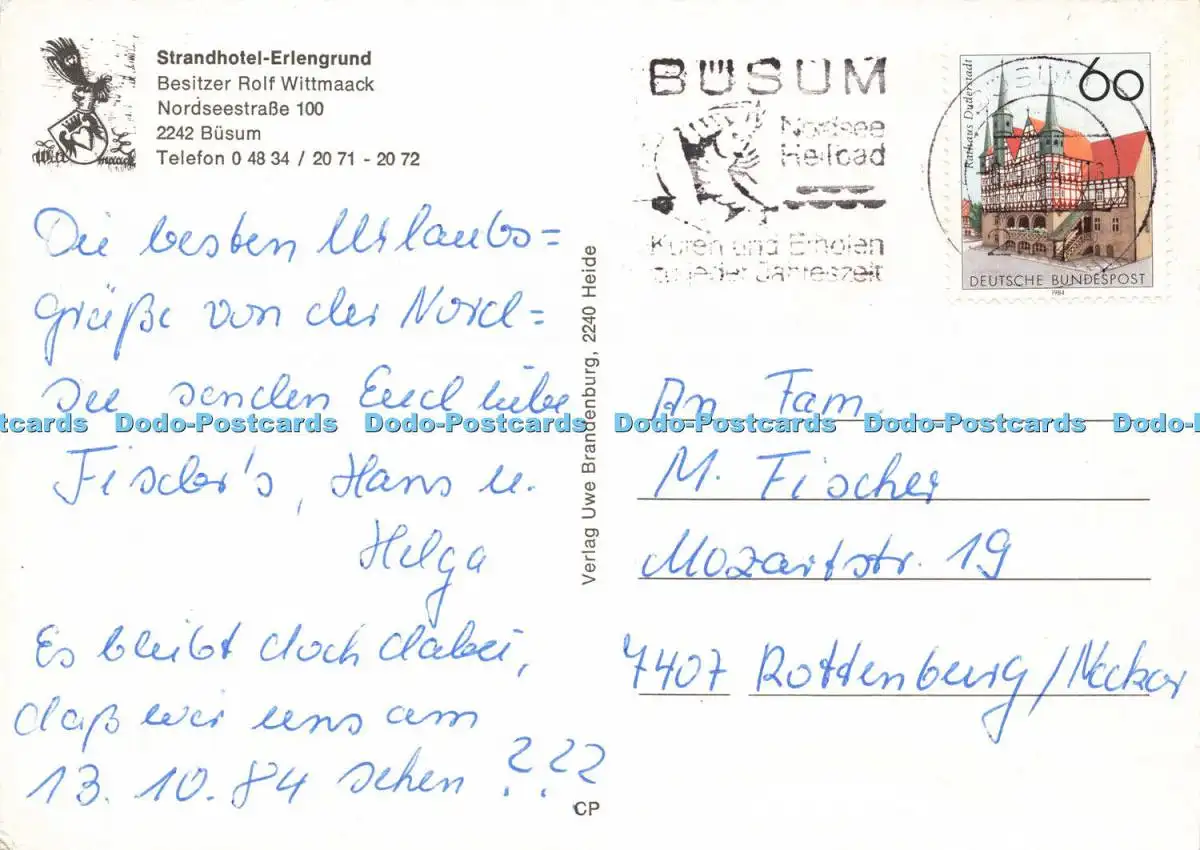 Strandhotel-Erlengrund
Besitzer Rolf Wittmaack
Nordseestraße 100
2242 Büsum
Telefon 0 48 34 / 20 71 - 20 72
Die besten Urlaubs=
grüße von der Nord=
see senden Euch liebe
Fischer's, Hans u.
Helga
Es bleibt doch dabei,
daß wir uns am
13. 10. 84 sehen ???
CP
Verlag Uwe Brandenburg, 2240 Heide
BÜSUM
Nordsee
Heilbad
Kuren und Erholen
zu jeder Jahreszeit
BÜSUM
60
Rathaus Duderstadt
DEUTSCHE BUNDESPOST
1984
An Fam.
M. Fischer
Mozartstr. 19
7407 Rottenburg/Neckar
tcards Dodo-Postcards Dodo-Postcards Dodo-Postcards Dodo-Postcards Dodo-P